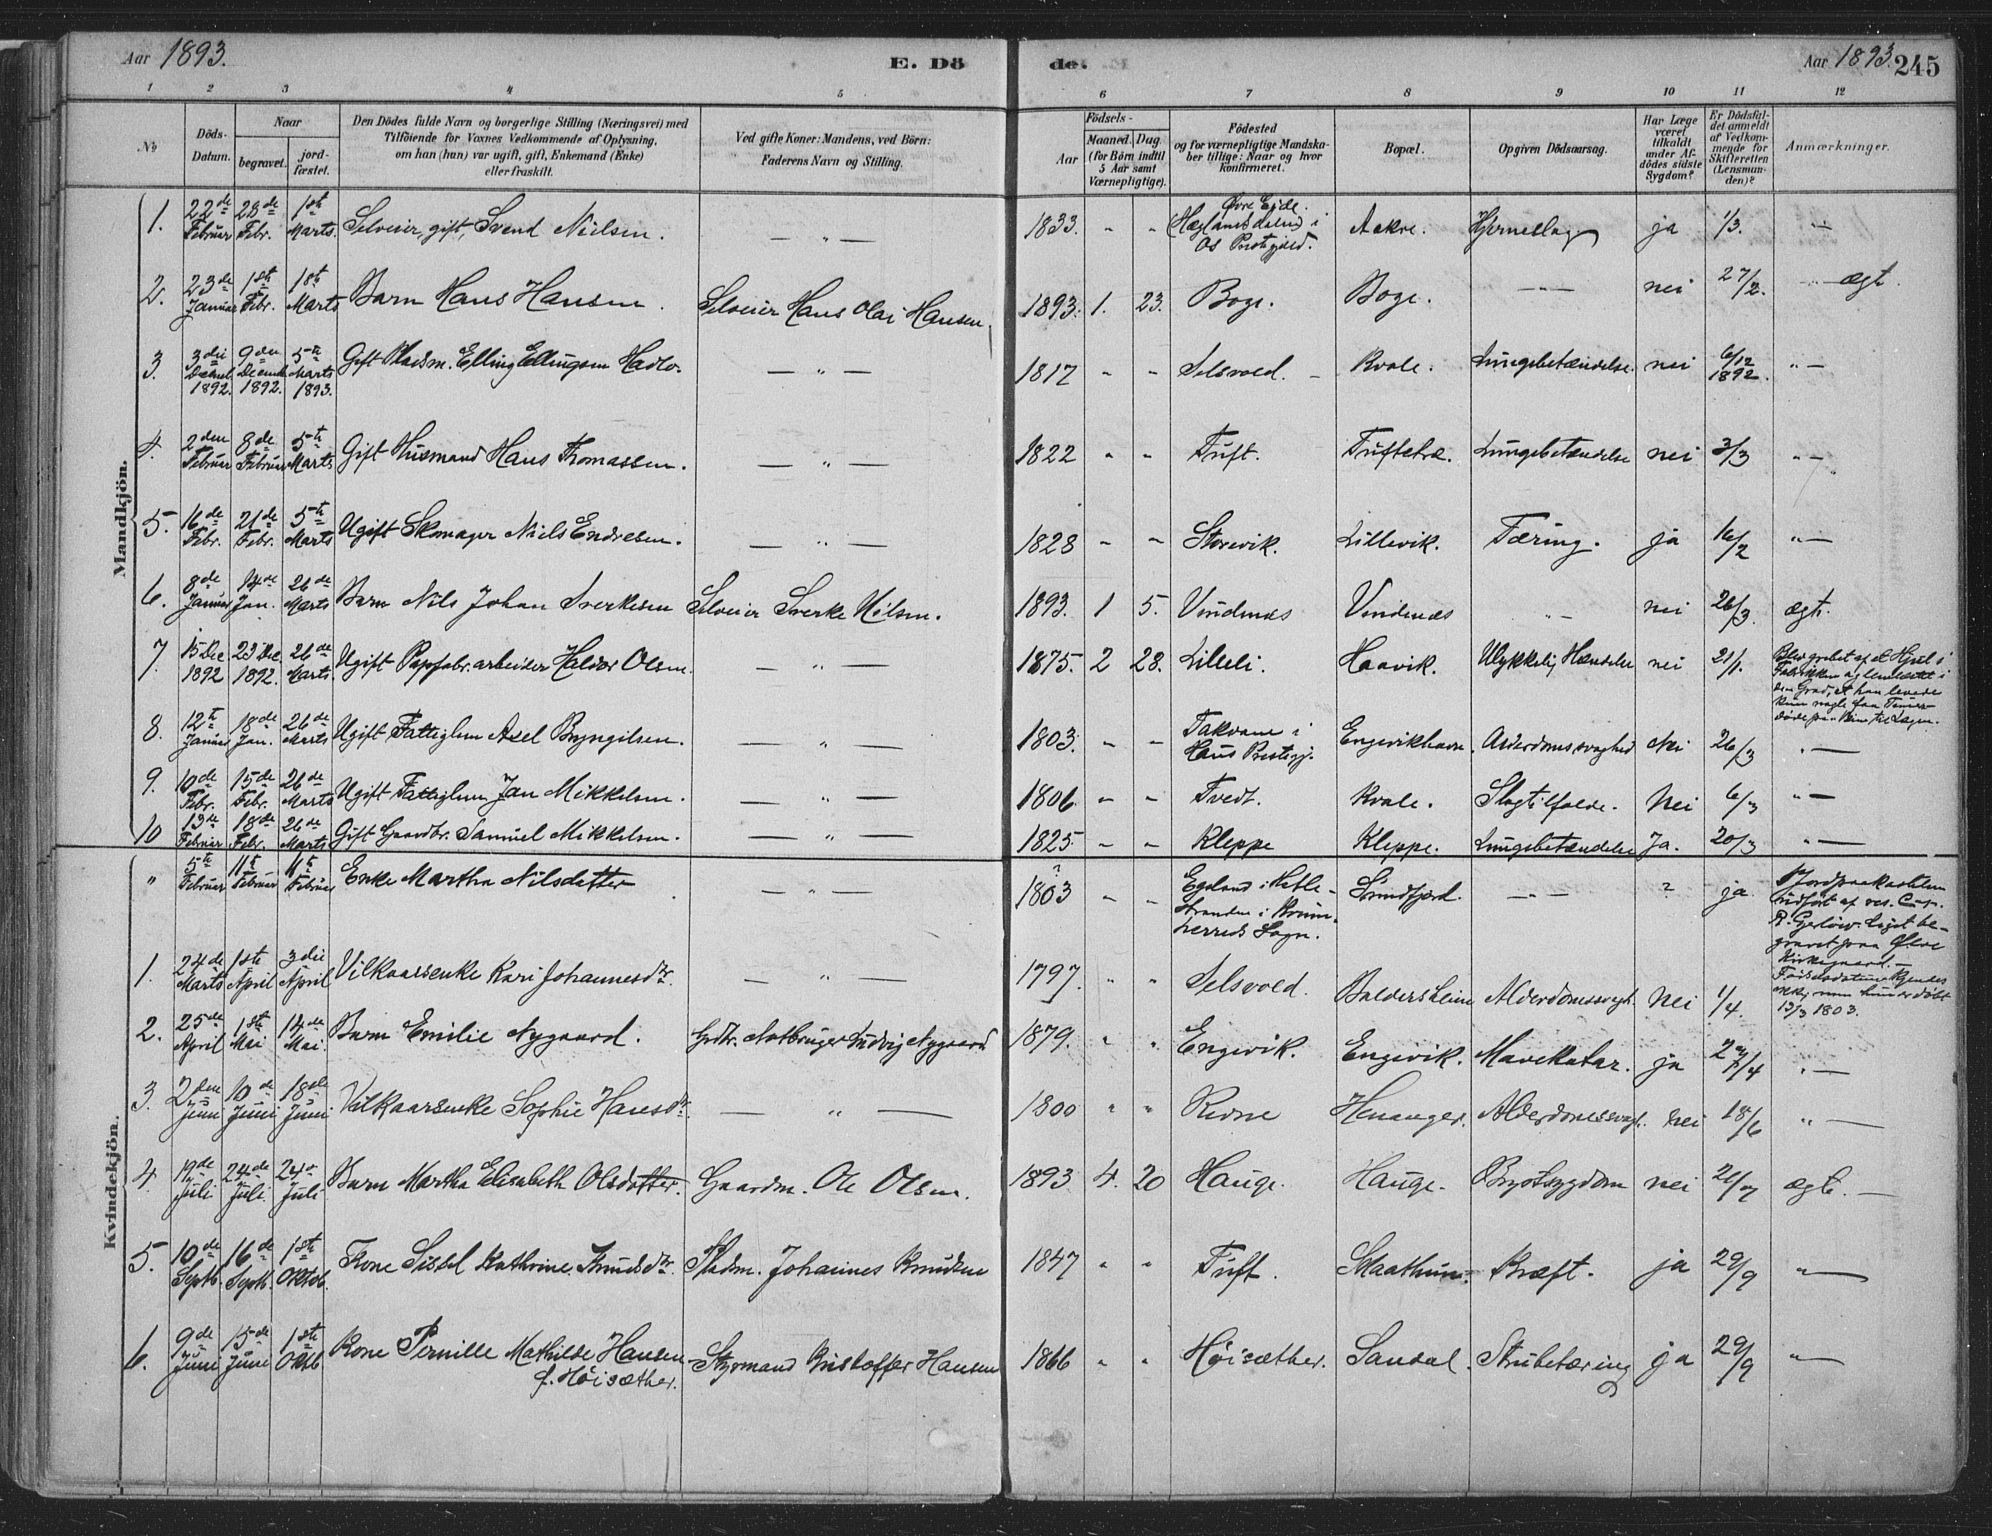 Aar 1893.
E. Dö
de.
Aar 1893.
245
1 2 3 4 5 6 7 8 9 10 11 12
№
Döds-
Datum.
Naar
begravet.
jord-
fæstet.
Den Dödes fulde Navn og borgerlige Stilling (Næringsvei) med
Tilföiende for Voxnes Vedkommende af Oplysning,
om han (hun) var ugift, gift, Enkemand (Enke)
eller fraskilt.
Ved gifte Koner: Mandens, ved Börn:
Faderens Navn og Stilling.
Födsels-
Aar
Maaned. Dag.
(for Börn indtil
5 Aar samt
Værnepligtige).
Födested
og for værnepligtige Mandska-
ber tillige: Naar og hvor
konfirmeret.
Bopæl.
Opgiven Dödsaarsag.
Har Læge
været
tilkaldt
under Af-
dödes sidste
Sygdom?
Er Dödsfal-
det anmeldt
af Vedkom-
mende for
Skifteretten
(Lensman-
den)?
Anmærkninger.
Mandkjön.
1. 22de Februar 28de Febr. 1ste Marts. Selveier, gift, Svend Nielsen. — „ — 1833. „ „ Øvre Eide. (Hæglandsdalen i Os Prestegjeld. Aakre. Hjerneslag ja 1/3. „—
2. 23de Januar 1ste Febr. 1ste Marts Barn Hans Hansen. Selveier Hans Olai Hansen. 1893. 1. 23. Boge. Boge. —„— nei 27/2. „— ægt.
3. 3die Decmb. 1892. 9den Decemb. 1892. 5te Marts 1893. Gift Pladsm. Elling Ellingsen Hadlo. — „ — 1817 „ „ Selsvold. Kvale. Lungebetændelse. nei 6/12 1892. „—
4. 2den Februar 8de Februar 5te Marts Gift Husmand Hans Thomassen. — „ — 1822 „ „ Tuft. Tuftetræ. Lungebetændelse nei 3/3 „—
5. 16de Febr. 21de Febr. 5te Marts Ugift Skomager Niels Endresen. — „ — 1828 „ „ Storevik. Lillevik. Tæring. ja 16/2 „—
6. 8de Januar 14de Jan. 26de Marts Barn Nils Johan Sverkesen Selveier Sverke Nilsen. 1893. 1 5. Vindenes Vindenes „— nei 26/3 ægte.
7. 15 Dec 1892 23 Dec. 1892. 26de Marts. Ugift Papfabr.arbeider Haldor Olsen. — „ — 1875. 2 28. Lilleli. Haavik. Ulykkelig Hændelse nei 21/1. Blev grebet af et Hjul i
Fabrikken og lemlæstet i
den Grad, at han levede
kun nogle faa Timer
8. 12te Januar 18de Jan. 26de Marts Ugift Fattiglem Axel Bryngilsen. — „ — 1803. „ „ Takvam i Haus Prestegj. Engevikhavn. Alderdomssvaghed Nei 26/3 „—
9. 10de Febr. 15de Febr. 26de Marts Ugift Fattiglem Jan Mikkelsen. — „ — 1806 „ „ Tvedt. Kvale. Slagtilfælde. Nei 6/3 „—
10 13de Februar 18de Febr. 26de Marts Gift Gaardbr. Samuel Mikkelsen. — „ — 1825 „ „ Kleppe Kleppe. Lungebetændelse Ja. 20/3 „—
Kvindekjön.
„ 5te Februar 11te Februar 11te Februar Enke Martha Nilsdatter — „ — ? 1803 „ „ Egeland i Hatle-
stranden i Kvinn-
herreds Sogn. Sundfjord. —„— ? ja. Jordpaakastelsen
udført af res. Cap.
R. Gerlow. Liget be-
gravet paa Ølve
Kirkegaard.—
Fødselsdatum kjendes
ikke, men hun er døbt
13/3 1803.
1. 24de Marts 1ste April 3die April Vilkaarsenke Kari Johannesdtr. — „ — 1797. „ „ Selsvold. Baldersheim Alderdomssvagh. Nei 1/4.
2. 25de April 1ste Mai 14de Mai. Barn Emilie Nygaard. Grdbr. Notbruger Ludvig Nygaard 1879. „ „ Engevik. Engevik. Mavekatar. ja 27/4 „—
3. 2den Juni 10de Juni 18de Juni Vilkaarsenke Sophie Hansdtr. — „ — 1800 „ „ Revne Henanger. Alderdomssvagh. nei 18/6 „—
4. 19de Juli 24de Juli 24de Juli Barn Martha Elisabeth Olsdatter. Gaardm. Ole Olsen. 1893 4. 20 Hauge. Hauge. Brystsygdom nei 26/7 ægte. —
5. 10de Septb. 16de Septb. 1ste Oktob. Kone Sissel Kathrine Knudsdtr. Pladsm. Johannes Knudsen 1847 „ „ Tuft. Maathun. Kræft. ja 29/9 „—
6. 9de Juni 15de Juni 1ste Oktb Kone Pernille Mathilde Hansen
f. Høisæther. Styrmand Kristoffer Hansen 1866 „ „ Høisæther. Sandal. Strubetæring ja 29/9 „—